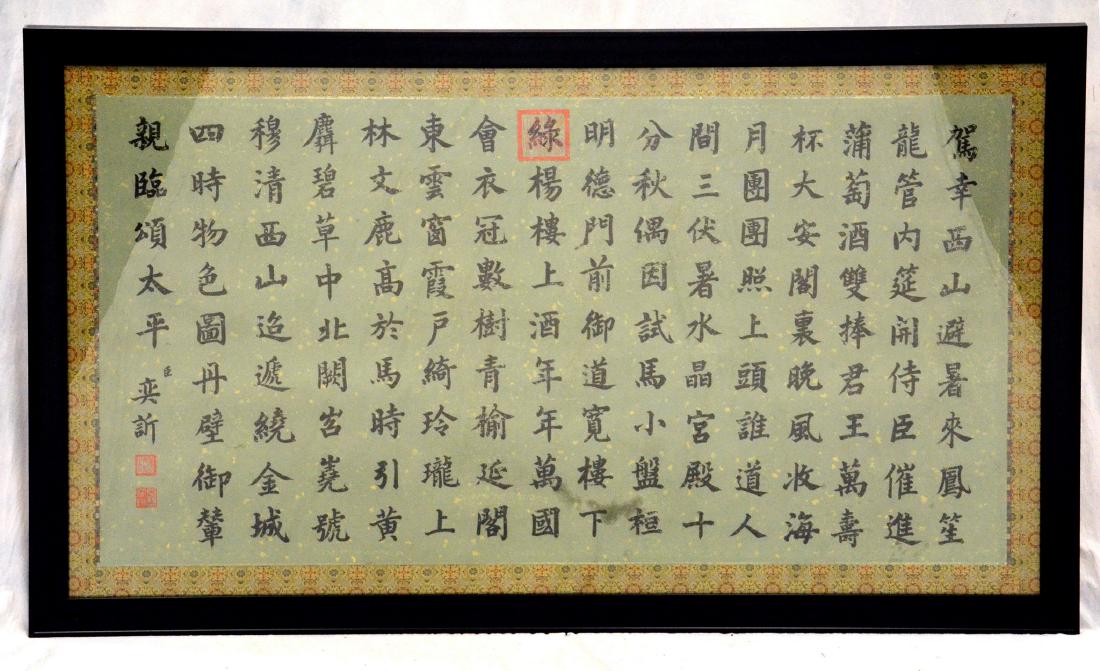 駕幸西山避暑來鳳笙
龍管內筵開侍臣催進
蒲萄酒雙捧君王萬壽
杯大安閣裏晚風收海
月團團照上頭誰道人
間三伏暑水晶宮殿十
分秋偶因試馬小盤桓
明德門前御道寬樓下
綠楊樓上酒年年萬國
會衣冠數樹青榆延閣
東雲窗霞戶綺玲瓏上
林文鹿高於馬時引黃
麛碧草中北闕岧嶤號
穆清西山迢遞繞金城
四時物色圖丹壁御輦
親臨頌太平 臣奕訢